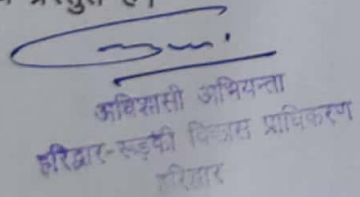 प्रस्तुत है।
अधिशासी अभियन्ता
हरिद्वार-रूड़की विकास प्राधिकरण
हरिद्वार